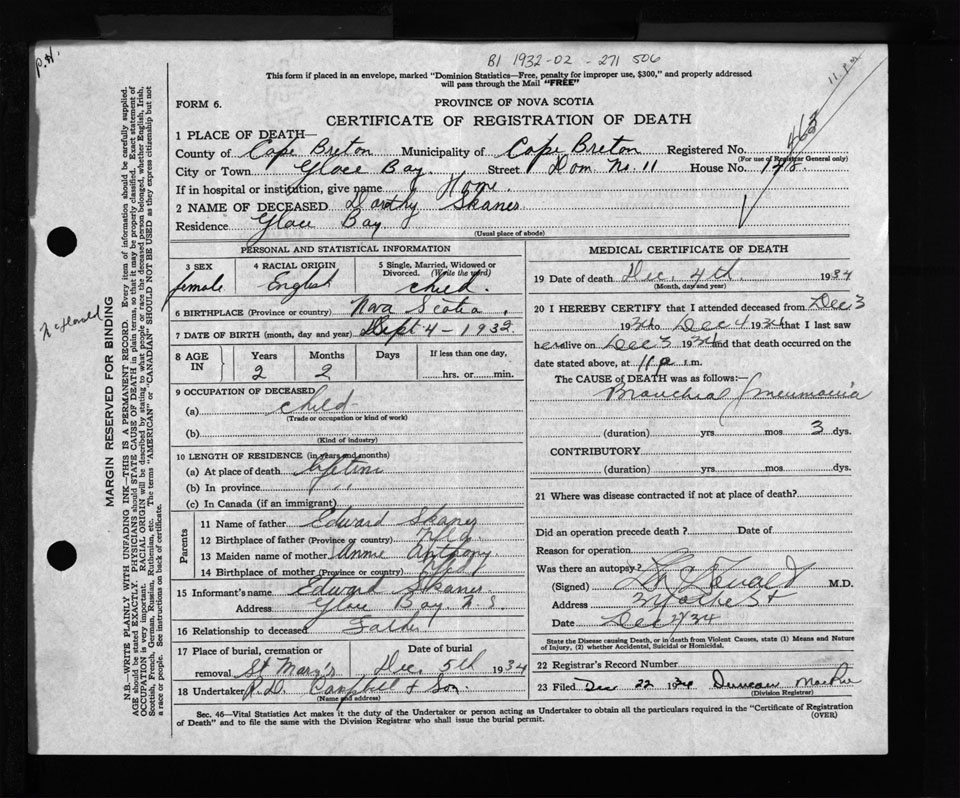 P.H.
B1 1932-02-271 506
11 p.m.
This form if placed in an envelope, marked "Dominion Statistics—Free, penalty for improper use, $300," and properly addressed
will pass through the Mail "FREE"
FORM 6.
PROVINCE OF NOVA SCOTIA
CERTIFICATE OF REGISTRATION OF DEATH
463
1 PLACE OF DEATH—
County of Cape Breton Municipality of Cape Breton Registered No.
(For use of Registrar General only)
City or Town Glace Bay Street Dom. No. 11 House No. 148
If in hospital or institution, give name Home.
2 NAME OF DECEASED Dorothy Skanes
Residence Glace Bay
(Usual place of abode)
PERSONAL AND STATISTICAL INFORMATION
3 SEX 4 RACIAL ORIGIN 5 Single, Married, Widowed or
Divorced. (Write the word)
female English child.
6 BIRTHPLACE (Province or country) Nova Scotia.
7 DATE OF BIRTH (month, day and year) Sept 4 - 1932
8 AGE IN Years Months Days If less than one day,
2 2 hrs. or min.
9 OCCUPATION OF DECEASED
(a) child
(Trade or occupation or kind of work)
(b)
(Kind of industry)
10 LENGTH OF RESIDENCE (in years and months)
(a) At place of death lifetime
(b) In province " "
(c) In Canada (if an immigrant)
Parents
11 Name of father Edward Skanes
12 Birthplace of father (Province or country) Nfld.
13 Maiden name of mother Annie Anthony
14 Birthplace of mother (Province or country) Nfld
15 Informant's name Edward Skanes
Address Glace Bay N S
16 Relationship to deceased Father
17 Place of burial, cremation or Date of burial
removal St Mary's Dec. 5th 1934
18 Undertaker R.D. Campbell & Son.
(Name and address)
MEDICAL CERTIFICATE OF DEATH
19 Date of death Dec. 4th. 1934
(Month, day and year)
20 I HEREBY CERTIFY that I attended deceased from Dec 3
1934 to Dec 4 1934 that I last saw
her alive on Dec 3 1934 and that death occurred on the
date stated above, at 11 p m.
The CAUSE of DEATH was as follows:—
Bronchial Pneumonia
(duration) yrs. mos. 3 dys.
CONTRIBUTORY
(duration) yrs. mos. dys.
21 Where was disease contracted if not at place of death?
Did an operation precede death? Date of
Reason for operation
Was there an autopsy?
(Signed) M.D.
Address
Date Dec 34
State the Disease causing Death, or in death from Violent Causes, state (1) Means and Nature
of Injury, (2) whether Accidental, Suicidal or Homicidal.
22 Registrar's Record Number
23 Filed Dec 22 1934 Duncan
(Division Registrar)
Sec. 46—Vital Statistics Act makes it the duty of the Undertaker or person acting as Undertaker to obtain all the particulars required in the "Certificate of Registration
of Death" and to file the same with the Division Registrar who shall issue the burial permit.
(OVER)
MARGIN RESERVED FOR BINDING
N.B.—WRITE PLAINLY WITH UNFADING INK—THIS IS A PERMANENT RECORD. Every item of information should be carefully supplied.
AGE should be stated EXACTLY. PHYSICIANS should STATE CAUSE OF DEATH in plain terms, so that it may be properly classified. Exact statement of
OCCUPATION is very important. RACIAL ORIGIN will be described by stating to what people or race the deceased person belonged, whether English, Irish,
Scottish, French, German, Russian, Ruthenian, etc. The terms "AMERICAN" or "CANADIAN SHOULD NOT BE USED as they express citizenship but not
a race or people. See instructions on back of certificate.